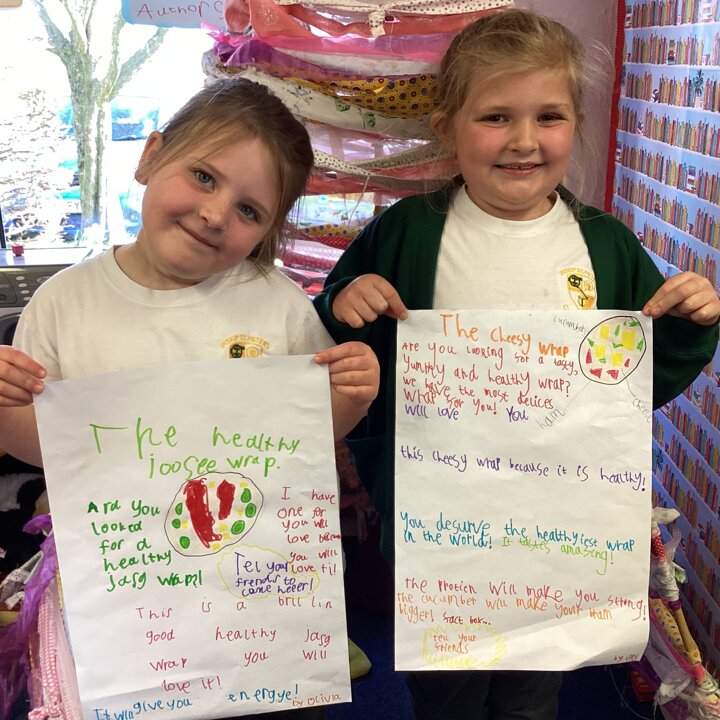 Authors
The healthy
joosee wrap.
Ard you
looked
for a
healthy
Jasg wrap?!
I have
one for
you will
love because
you will
love ti!
Tel your
friends to
come heeer!
This is a brillin
good healthy Jasg
wrap you will
love it!
It will give you energye!
by Olivia
The cheesy wrap
Are you looking for a tasty,
yummy and healthy wrap?
we have the most delices
wrap for you! You
will love
this cheesy wrap because it is healthy!
You desurve the healthyiest wrap
in the world! It tastes amazing!
the protien will make you strong!
The cucumber will make your brain
bigger! fact box...
Tell your
friends
by illy
cucumber
ham
cheese